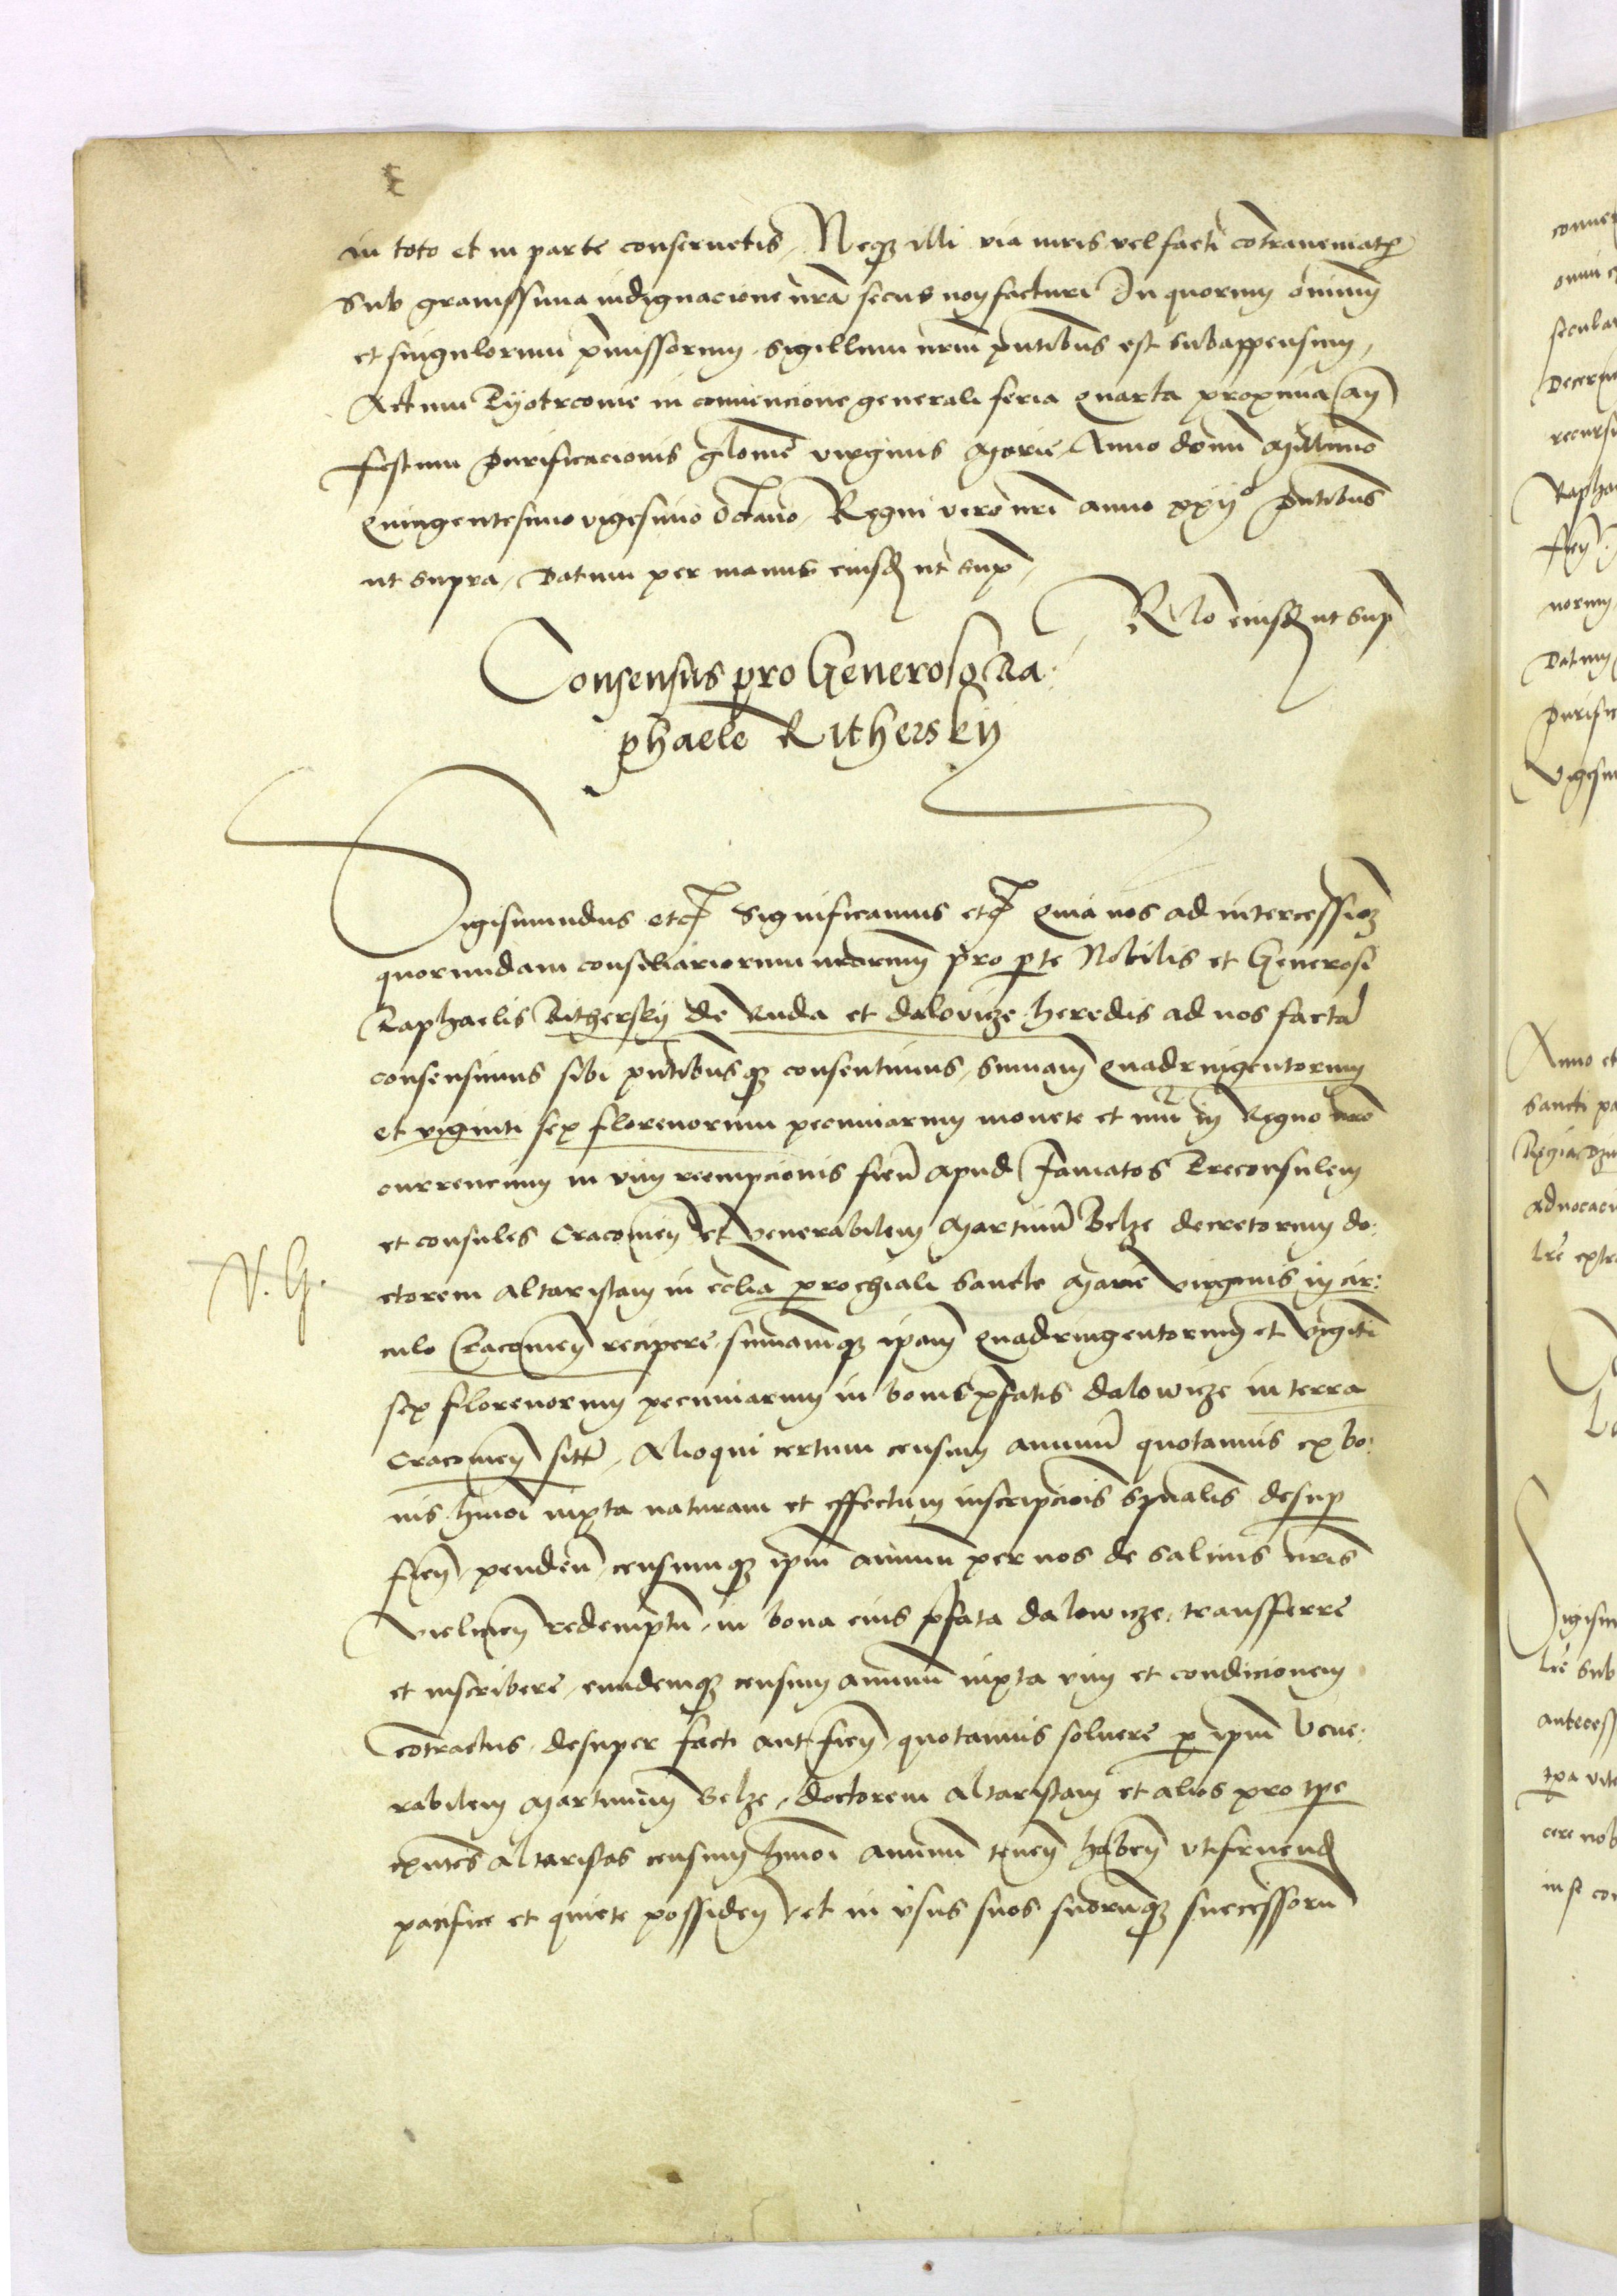 in toto et in parte conseruetis, Neqz illi via iuris vel facti cotraueniatr
Sub grauissima indignacione nra secus non facturi In quorum omnium
et singulorum pmissorum sigillum nrum pntibus est subappensum,
Actum Pyotrcouie in conuencione generali feria quarta proxima an
festum purificacionis glose virginis Marie Anno domi Millimo
quingentesimo vigesimo octauo, Regni vero nri anno xxij° pntibus
ut supra, Datum per manus eiusd ut sup,
Rlo eiusd ut sup
Consensus pro Generoso Ra
phaele Rithersky
Sigismundus etc Significamus etc Quia nos ad intercessioz
quorundam consiliariorum nrorum pro pte Nobilis et Generosi
Raphaelis Rithersky de Ruda et dalovicze heredis ad nos facta
consensimus sibi pntibusqz consentimus, sumam quadringentorum
et viginti sex florenorum pecuniarum monete et nui in Regno nro
currencium in vim reempcionis fien apud Famatos Preconsulem
et consules Cracouien et Venerabilem Martinu Belze decretorum do:
V. G.
ctorem altaristam in ecclia prochiali sancte Marie virginis in cir:
culo Cracouien recipere, sumamqz ipam quadringentorum et viginti
sex florenorum pecuniarum in bonis pfatis dalowicze in terra
Cracouien sitt, Alioqui certum censum annuu quotannis ex bo:
nis hmoi iuxta naturam et effectum inscripciois spualis desup
fien, penden, censumqz ipm annuu per nos de salinis nris
Vielicien redemptu, in bona eius pfata dalowicze, transferre
et inscribere, eundemqz censum annuu iuxta vim et condicionem
cotractus desuper facti aut fien, quotannis soluere p ipm Vene:
rabilem Martinum Belze, doctorem altaristam et alios pro tpe
exntes altaristas censum hmoi annuu tenen haben vtifruend
pacifice et quiete possiden, et in vsus suos suoruqz successoru